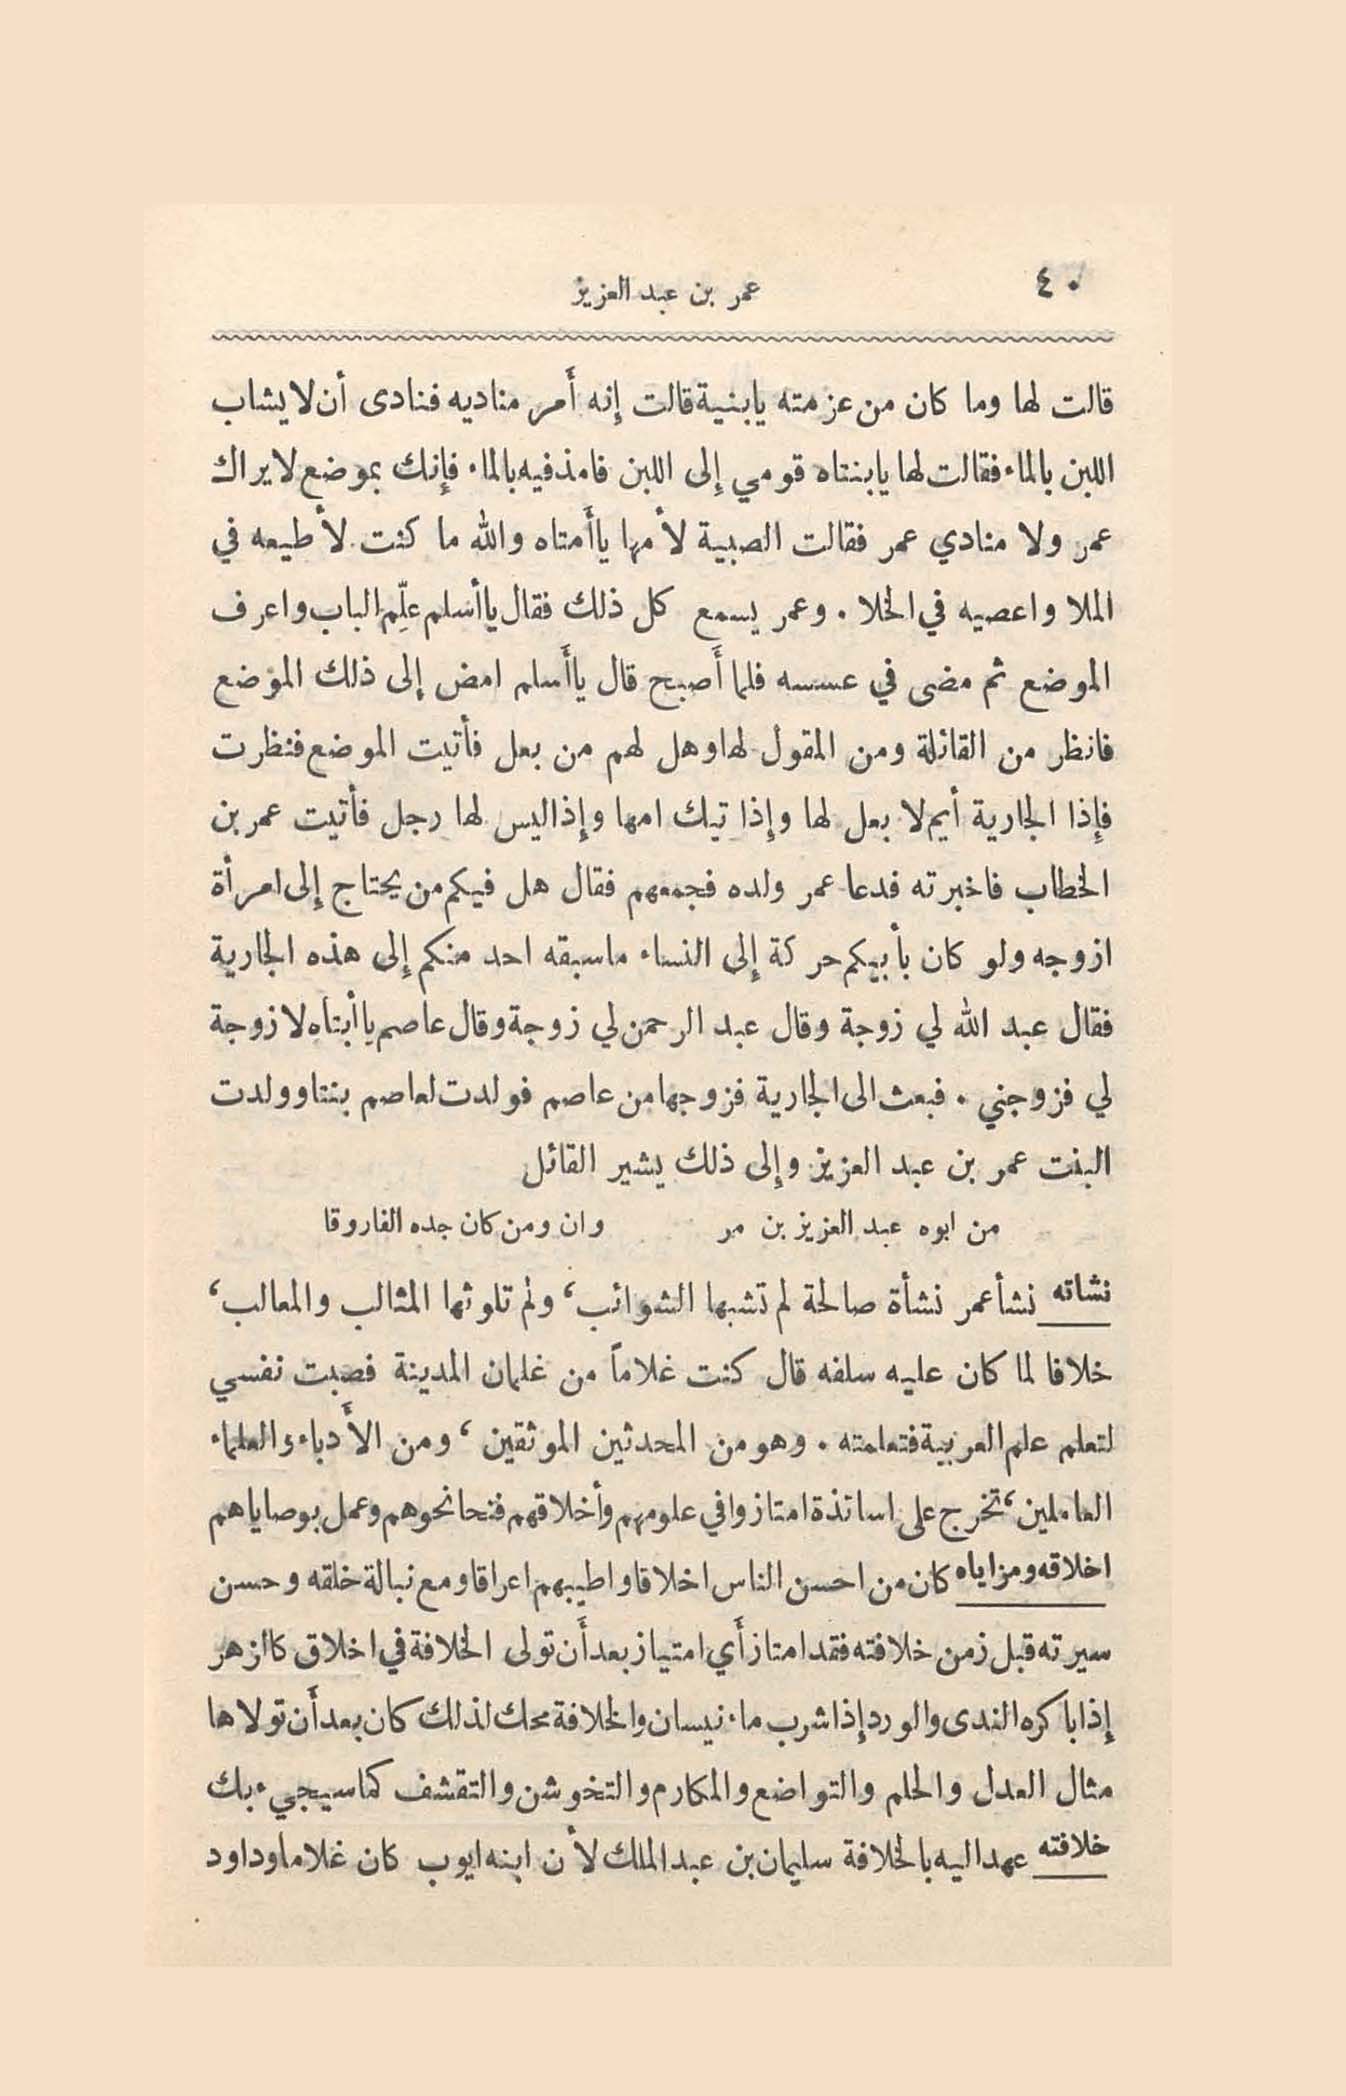 ٤٠
عمر بن عبد العزيز
قالت لها وما كان من عزمته يابنية قالت إنه أَمر مناديه فنادى أن لا يشاب
اللبن بالماء فقالت لها يابنتاه قومي إلى اللبن فامذفيه بالماء فإنك بموضع لا يراك
عمر ولا منادي عمر فقالت الصبية لأمها ياأَمتاه والله ما كنت لأطيعه في
الملا واعصيه في الخلا . وعمر يسمع كل ذلك فقال ياأسلم علِّم الباب واعرف
الموضع ثم مضى في عسسه فلما أَصبح قال ياأَسلم امض إلى ذلك الموضع
فانظر من القائلة ومن المقول لها وهل لهم من بعل فأتيت الموضع فنظرت
فإذا الجارية أيم لا بعل لها وإذا تيك امها وإذا ليس لها رجل فأتيت عمر بن
الخطاب فاخبرته فدعا عمر ولده فجمعهم فقال هل فيكم من يحتاج إلى امرأة
ازوجه ولو كان بأبيكم حركة إلى النساء ماسبقه احد منكم إلى هذه الجارية
فقال عبد الله لي زوجة وقال عبد الرحمن لي زوجة وقال عاصم ياأبتاه لا زوجة
لي فزوجني . فبعث الى الجارية فزوجها من عاصم فولدت لعاصم بنتا وولدت
البنت عمر بن عبد العزيز وإلى ذلك يشير القائل
من ابوه عبد العزيز بن مر وان ومن كان جده الفاروقا
نشاته نشأ عمر نشأة صالحة لم تشبها الشوائب، ولم تلوثها المثالب والمعالب،
خلافا لما كان عليه سلفه قال كنت غلاماً من غلمان المدينة فصبت نفسي
لتعلم علم العربية فتعلمته . وهو من المحدثين الموثقين، ومن الأَدباء والعلماء
العاملين، تخرج على اساتذة امتازوا في علومهم وأخلاقهم فنحا نحوهم وعمل بوصاياهم
اخلاقه ومزاياه كان من احسن الناس اخلاقا واطيبهم اعراقا ومع نبالة خلقه وحسن
سيرته قبل زمن خلافته فقد امتاز أَي امتياز بعد أَن تولى الخلافة في اخلاق كالزهر
إذا باكره الندى والورد إذا شرب ماء نيسان والخلافة محك لذلك كان بعد أَن تولاها
مثال العدل والحلم والتواضع والمكارم والتخوشن والتقشف كما سيجيء بك
خلافته عهد اليه بالخلافة سليمان بن عبد الملك لأن ابنه ايوب كان غلاما وداود